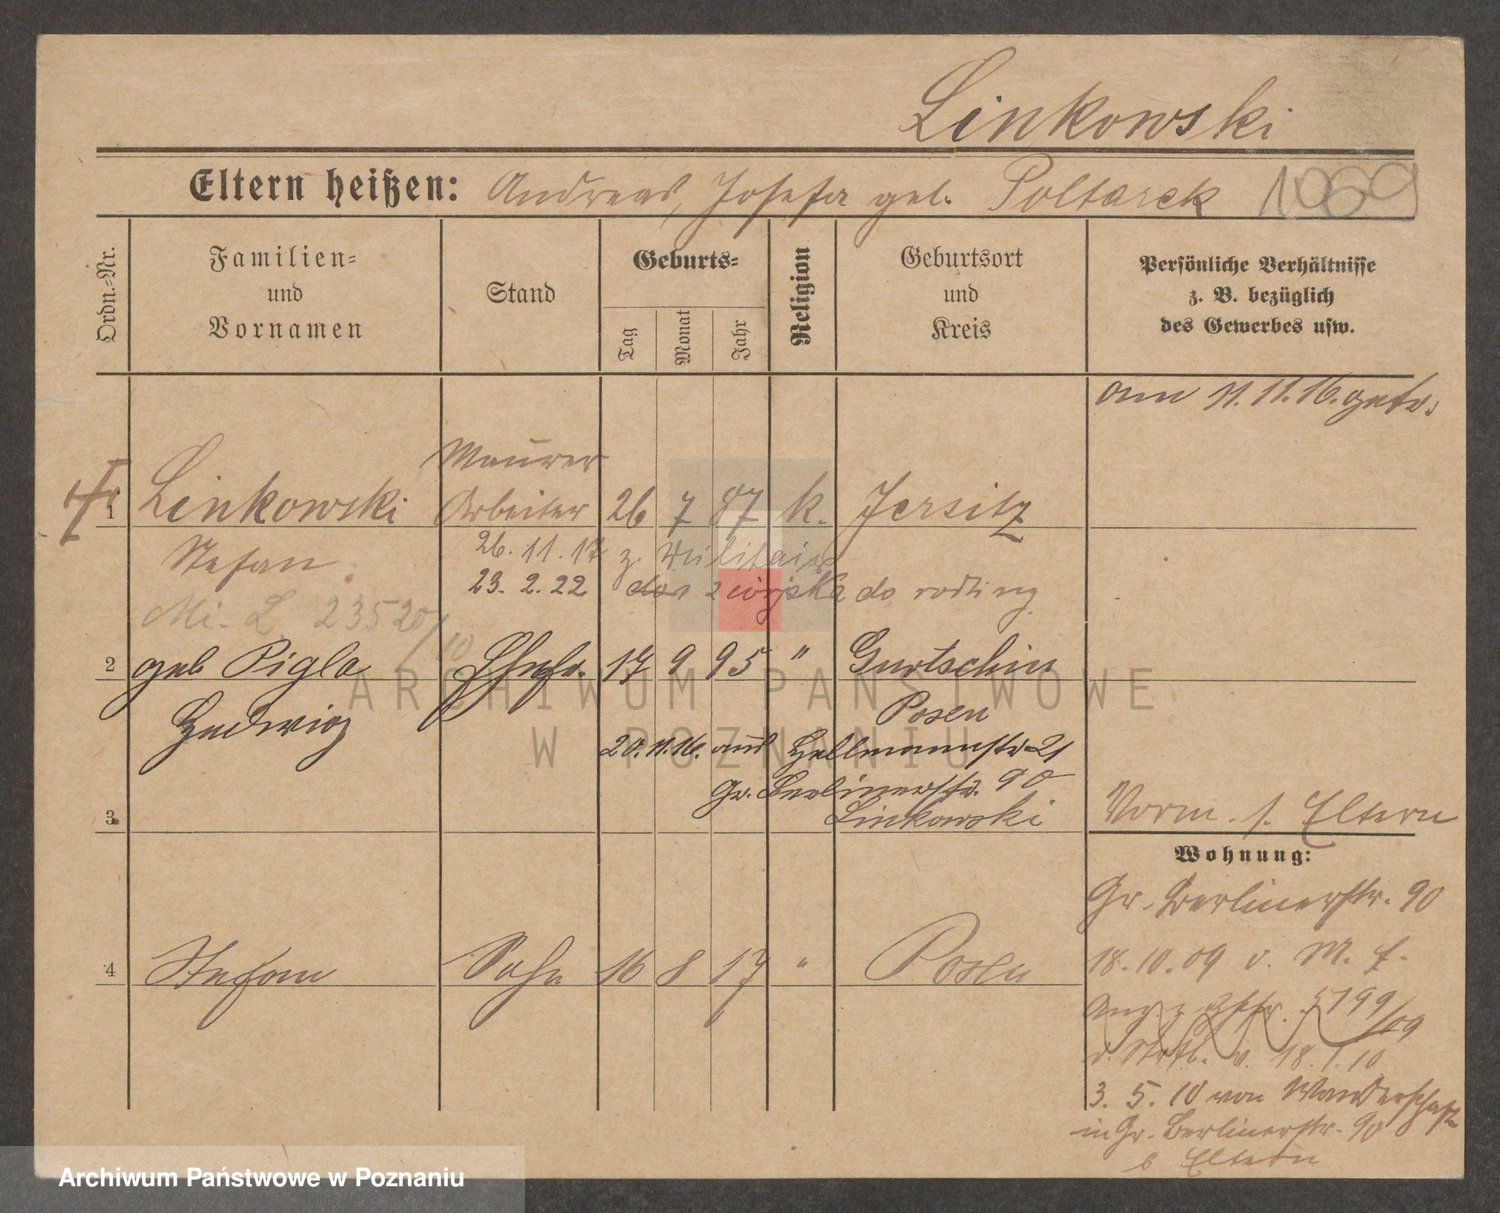 Linkowski
Eltern heißen: Andreas, Josefa geb. Poltarek 1069
Ordn.-Nr.
Familien-
und
Vornamen
Stand
Geburts-
Tag
Monat
Jahr
Religion
Geburtsort
und
Kreis
Persönliche Verhältnisse
z. B. bezüglich
des Gewerbes usw.
am 11.11.16. getr.
Maurer
1 Linkowski Arbeiter 26 7 87 k. Jersitz
Stefan
26. 11. 17 z. Militair
23. 2. 22 do
Mi. L 23520/10
2 geb Pigla Ehefr. 17 9 95 " Gurtschin
Hedwig
Posen
20.11.16. aus Hellmannstr 21
Gr. Berlinerstr. 90
Linkowski
3
Vorm. s. Eltern
Wohnung:
Gr. Berlinerstr. 90
18. 10. 09 v. M. E.
4 Stefan Sohn 16 8 17 " Posen
5199/09
v. 18.1.10
3. 5. 10 von Wanderschaft
in Gr. Berlinerstr. 90
b Eltern
ARCHIWUM PAŃSTWOWE
W POZNANIU
Archiwum Państwowe w Poznaniu